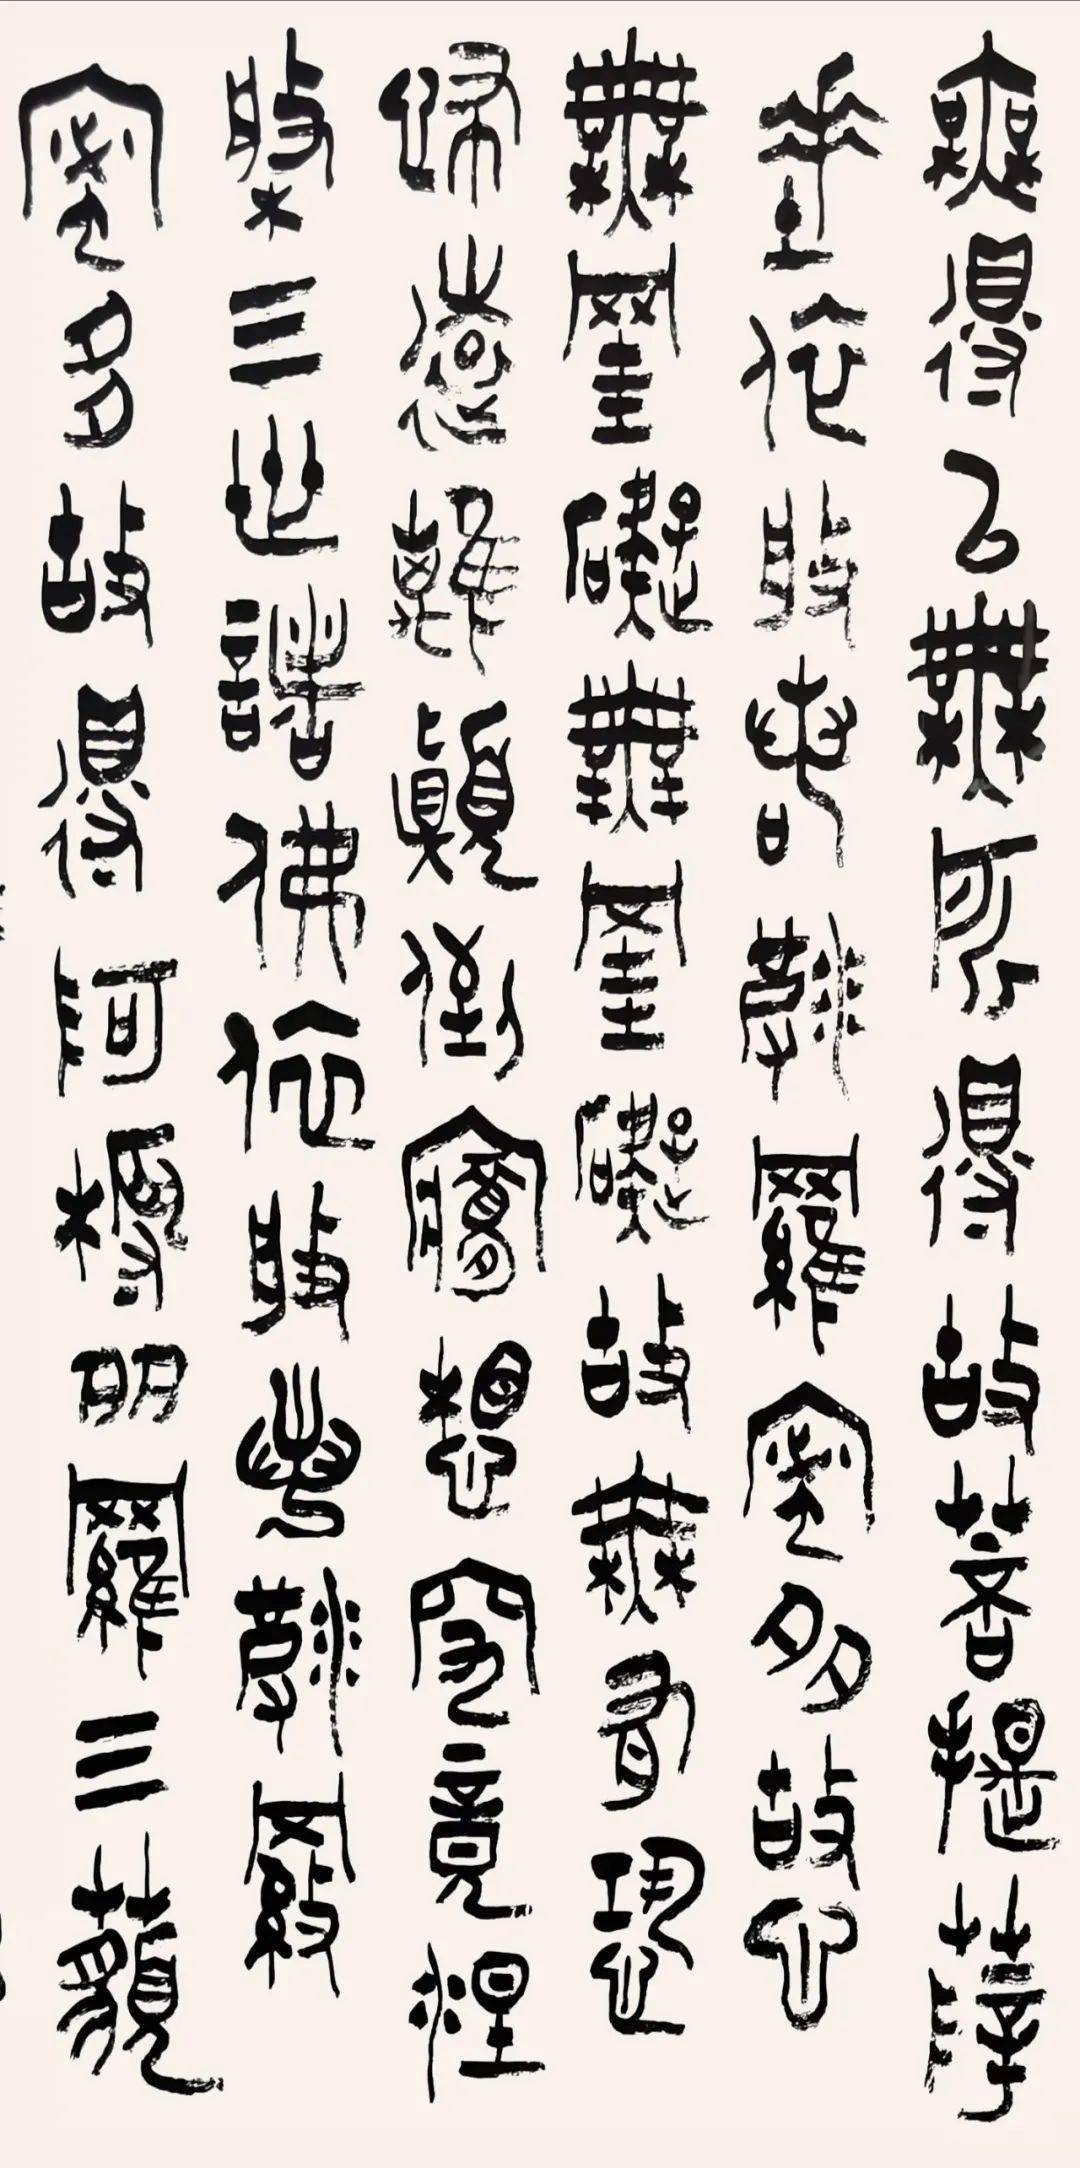 無得以無所得故菩提薩
埵依般若波羅蜜多故心
無罣礙無罣礙故無有恐
怖遠離顛倒夢想究竟涅
槃三世諸佛依般若波羅
蜜多故得阿耨多羅三藐